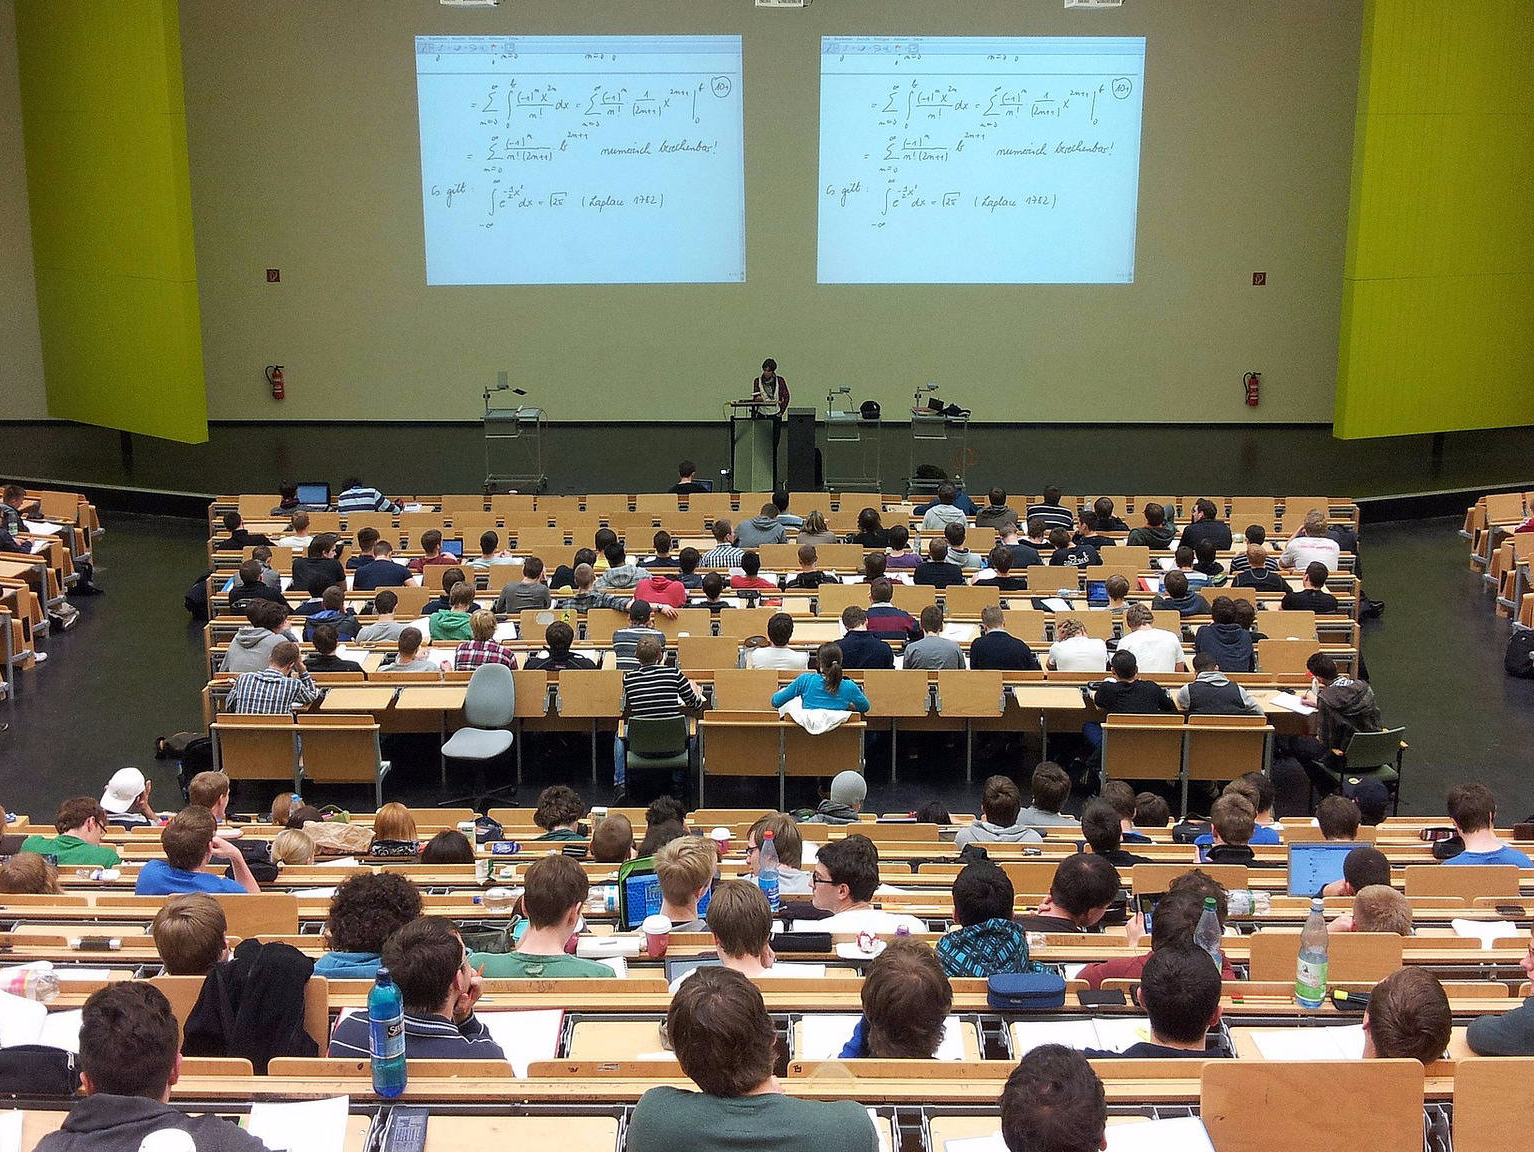 = ∑_{n=0}^{∞} ∫_0^b (-1)^n x^{2n} / n! dx = ∑_{n=0}^{∞} (-1)^n / n! 1/(2n+1) x^{2n+1} |_0^b
= ∑_{n=0}^{∞} (-1)^n / n!(2n+1) · b^{2n+1} numerisch berechenbar!
Es gilt: ∫_{-∞}^{∞} e^{-½x²} dx = √2π (Laplace 1782)
= ∑_{n=0}^{∞} ∫_0^b (-1)^n x^{2n} / n! dx = ∑_{n=0}^{∞} (-1)^n / n! 1/(2n+1) x^{2n+1} |_0^b
= ∑_{n=0}^{∞} (-1)^n / n!(2n+1) b^{2n+1} numerisch berechenbar!
Es gilt: ∫_{-∞}^{∞} e^{-½x²} dx = √2π (Laplace 1782)